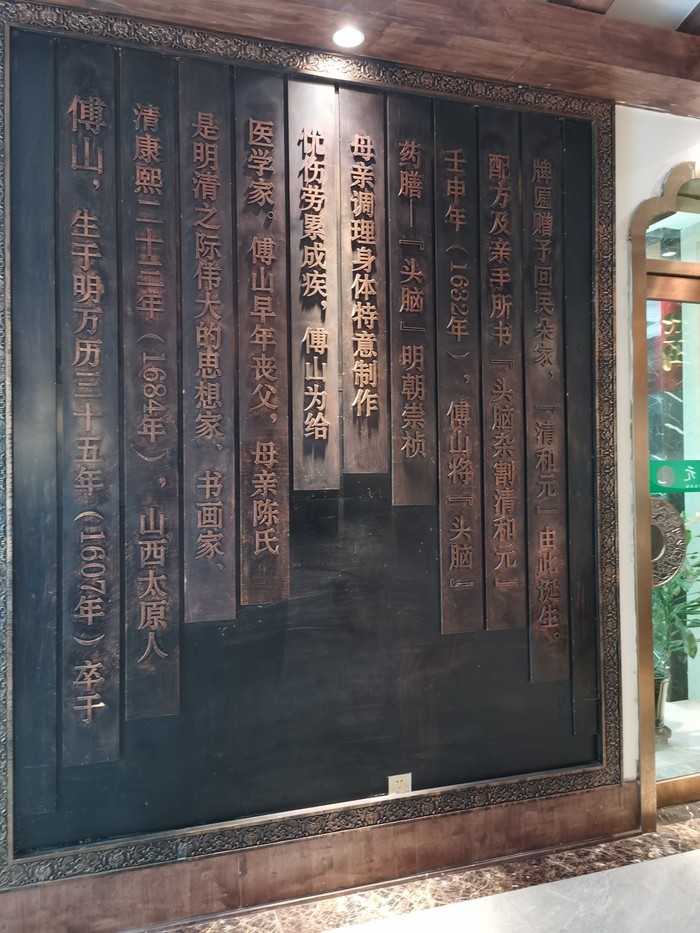 傅山，生于明万历三十五年（1607年）卒于
清康熙二十三年（1684年），山西太原人
是明清之际伟大的思想家、书画家、
医学家。傅山早年丧父，母亲陈氏
忧伤劳累成疾，傅山为给
母亲调理身体特意制作
药膳—『头脑』明朝崇祯
壬申年（1632年），傅山将『头脑』
配方及亲手所书『头脑杂割清和元』
牌匾赠予回民朵家，『清和元』由此诞生。